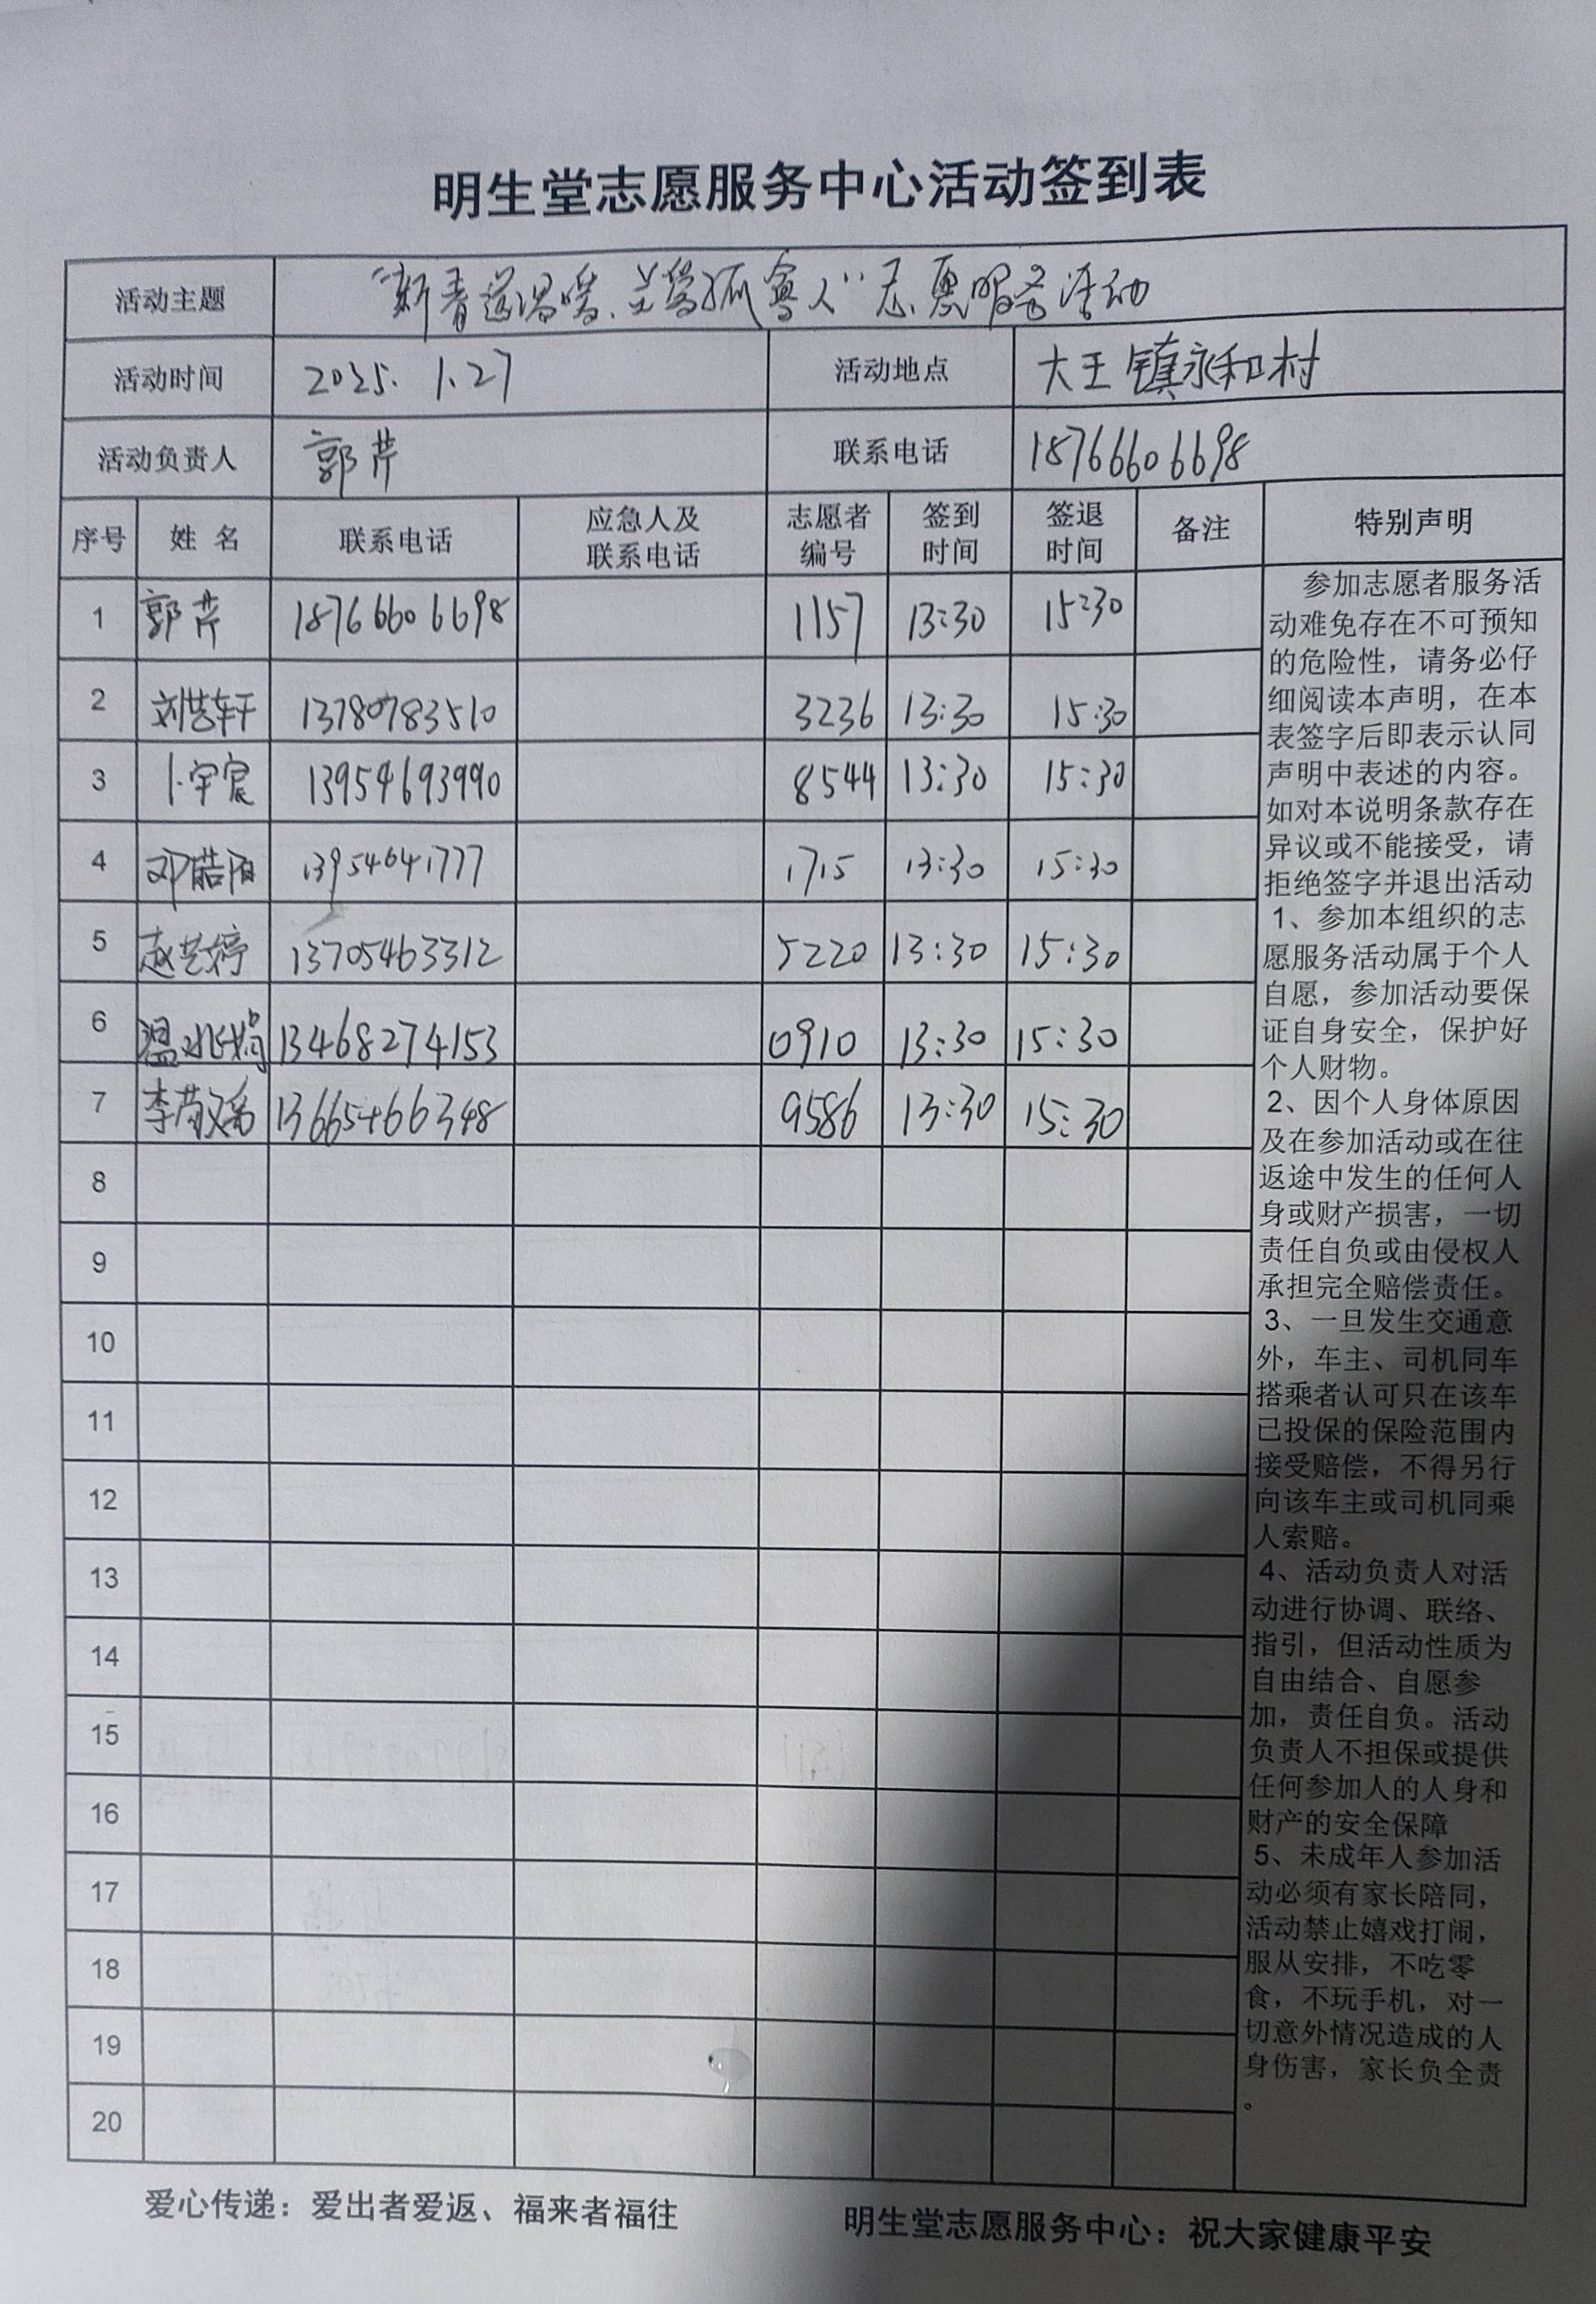 明生堂志愿服务中心活动签到表
活动主题 “新春送温暖、关爱孤寡人”志愿服务活动
活动时间 2025. 1.27 活动地点 大王镇永和村
活动负责人 郭芹 联系电话 18766606698
序号 姓名 联系电话 应急人及联系电话 志愿者编号 签到时间 签退时间 备注 特别声明
1 郭芹 18766606698 1157 13:30 15:30
2 刘艺轩 13780783510 3236 13:30 15:30
3 卜宇宸 13954693990 8544 13:30 15:30
4 邓皓阳 13954641777 1715 13:30 15:30
5 赵艺婷 13705463312 5220 13:30 15:30
6 温 13468274153 0910 13:30 15:30
7 李 13665466348 9586 13:30 15:30
8
9
10
11
12
13
14
15
16
17
18
19
20
参加志愿者服务活
动难免存在不可预知
的危险性，请务必仔
细阅读本声明，在本
表签字后即表示认同
声明中表述的内容。
如对本说明条款存在
异议或不能接受，请
拒绝签字并退出活动
1、参加本组织的志
愿服务活动属于个人
自愿，参加活动要保
证自身安全，保护好
个人财物。
2、因个人身体原因
及在参加活动或在往
返途中发生的任何人
身或财产损害，一切
责任自负或由侵权人
承担完全赔偿责任。
3、一旦发生交通意
外，车主、司机同车
搭乘者认可只在该车
已投保的保险范围内
接受赔偿，不得另行
向该车主或司机同乘
人索赔。
4、活动负责人对活
动进行协调、联络、
指引，但活动性质为
自由结合、自愿参
加，责任自负。活动
负责人不担保或提供
任何参加人的人身和
财产的安全保障
5、未成年人参加活
动必须有家长陪同，
活动禁止嬉戏打闹，
服从安排，不吃零
食，不玩手机，对一
切意外情况造成的人
身伤害，家长负全责
。
爱心传递：爱出者爱返、福来者福往 明生堂志愿服务中心：祝大家健康平安